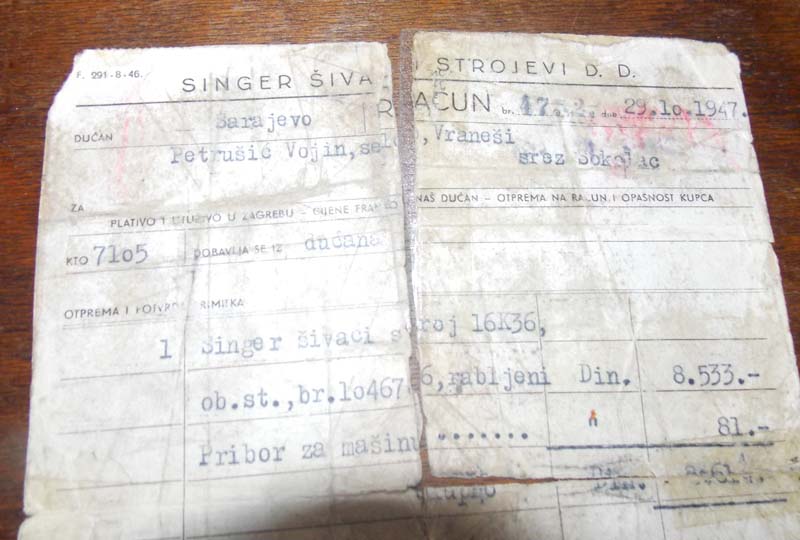 F. 291-8-46.
SINGER ŠIVA I STROJEVI D. D.
RAČUN br. dne 29.10.1947.
DUĆAN Sarajevo
Petrušić Vojin, Vraneši
srez Sokolac
ZA
PLATIVO I UTUŽIVO U ZAGREBU – CIJENE FRANKO NAŠ DUĆAN – OTPREMA NA RAČUN I OPASNOST KUPCA
KTO 7105 DOBAVLJA SE IZ dućana
OTPREMA I POTVRDA PRIMITKA
1 Singer šivaći stroj 16K36,
ob.st.,br.10467 6,rabljeni Din. 8.533.-
Pribor za mašinu ....... " 81.-
Din. 8.614.-